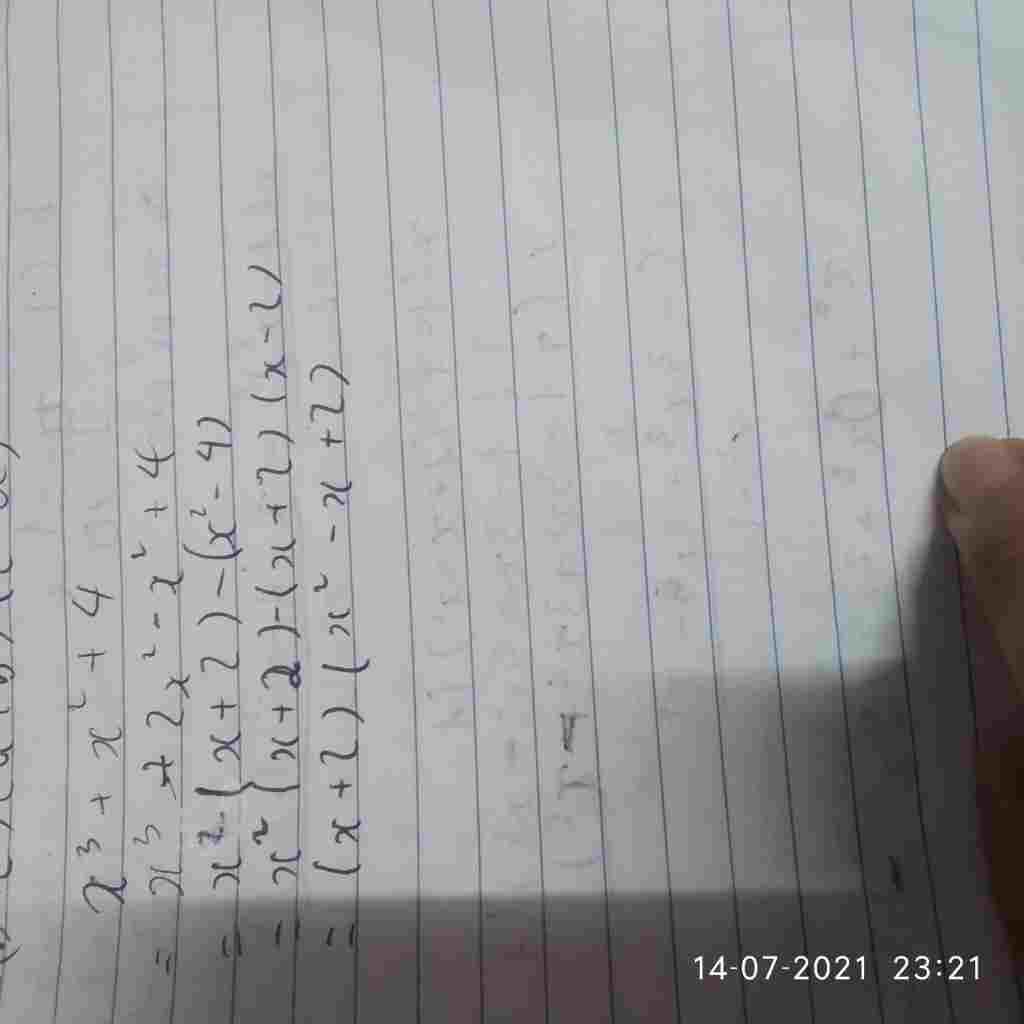 x³ + x² + 4
= x³ + 2x² - x² + 4
= x² (x + 2) - (x² - 4)
= x² (x + 2) - (x + 2) (x - 2)
= (x + 2) (x² - x + 2)
14-07-2021 23:21